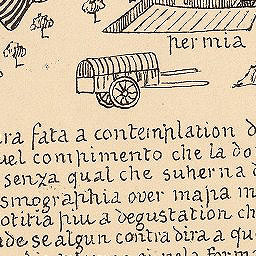 permia
ra fata a contemplation d
uel compimento che la do
senza qual che suherna d
smographia over mapa m
otitia piu a degustation ch
de se algun contradira a que